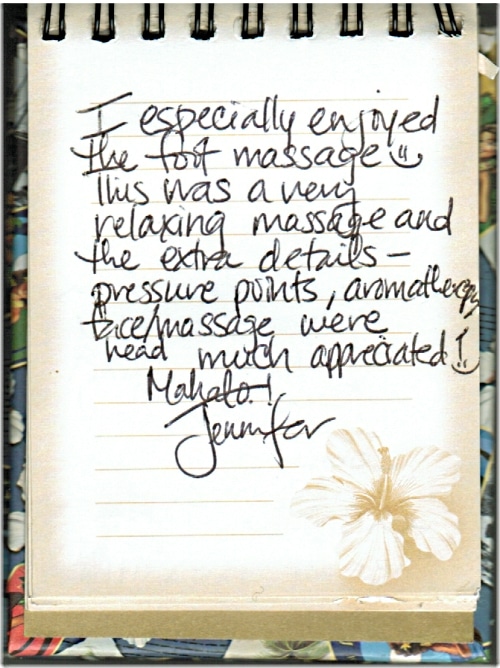 I especially enjoyed
the foot massage
This was a very
relaxing massage and
the extra details –
pressure points, aromatherapy
face/massage were
head much appreciated!
Mahalo!
Jennifer